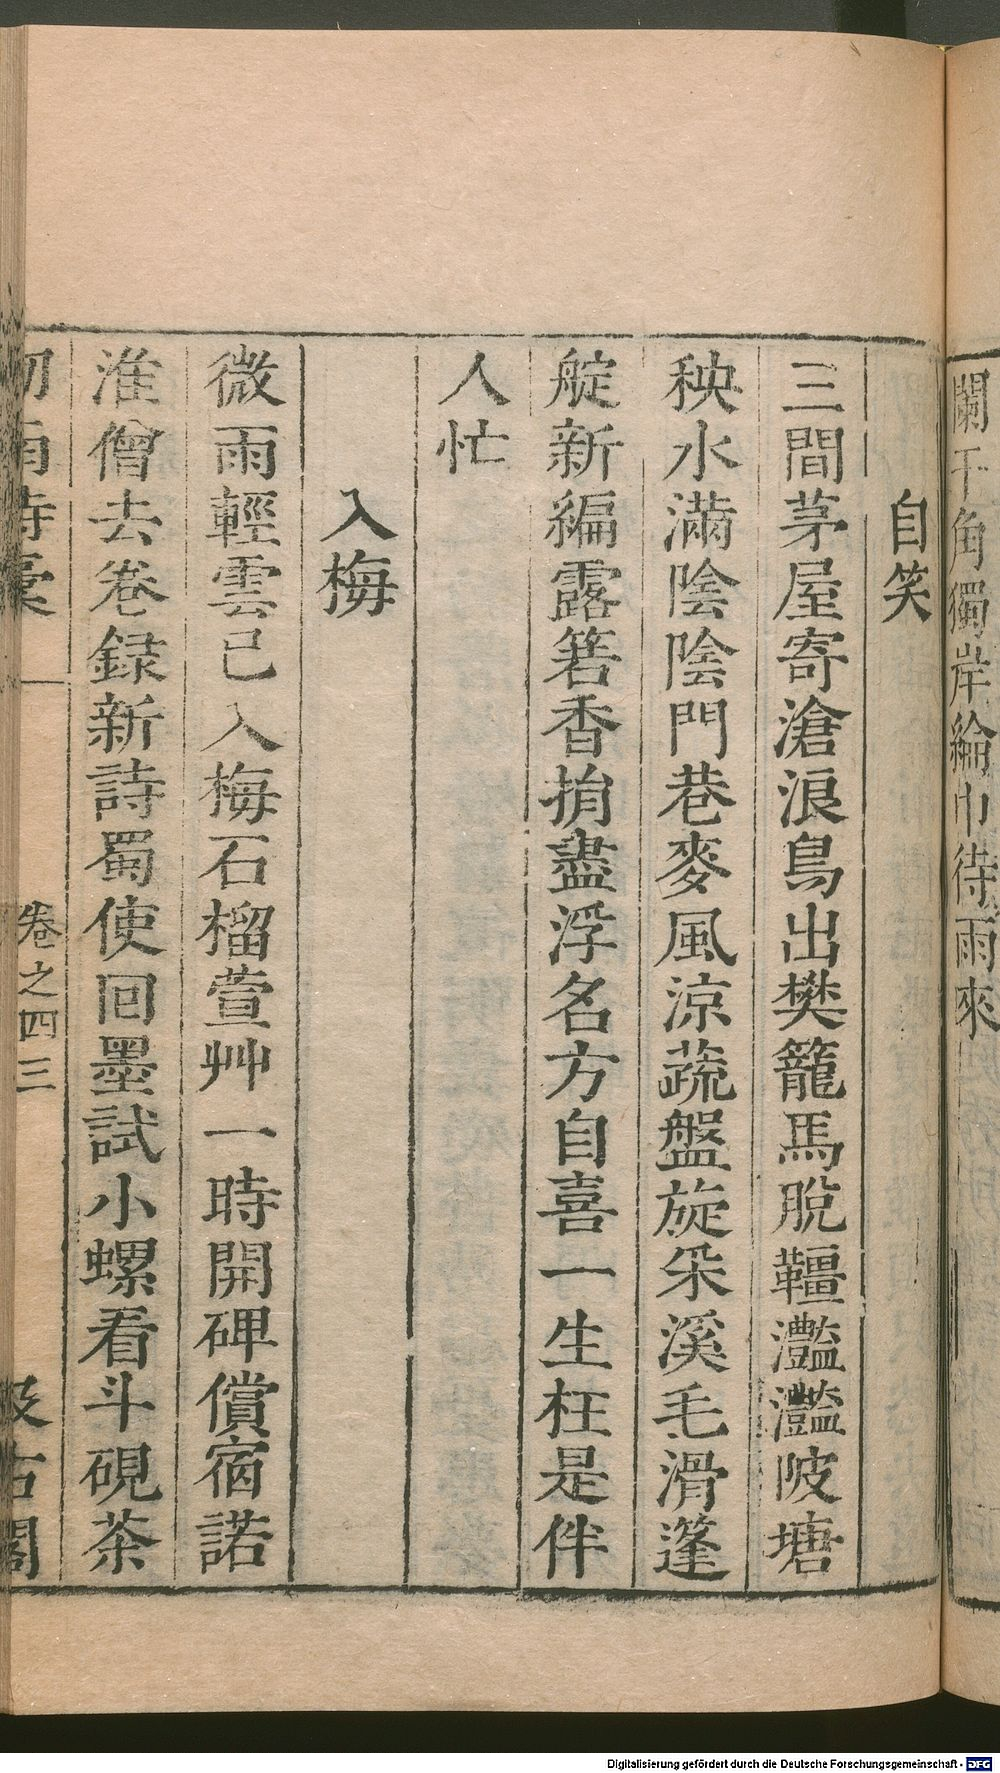 闌干角獨岸綸巾待雨來
自笑
三間茅屋寄滄浪鳥出樊籠馬脫韁灩灩陂塘
秧水滿陰陰門巷麥風涼蔬盤旋采溪毛滑篷
艇新編露箬香捐盡浮名方自喜一生枉是伴
人忙
入梅
微雨輕雲已入梅石榴萱艸一時開碑償宿諾
淮僧去卷錄新詩蜀使回墨試小螺看斗硯茶
卷之四 三
汲古閣
Digitalisierung gefördert durch die Deutsche Forschungsgemeinschaft - DFG